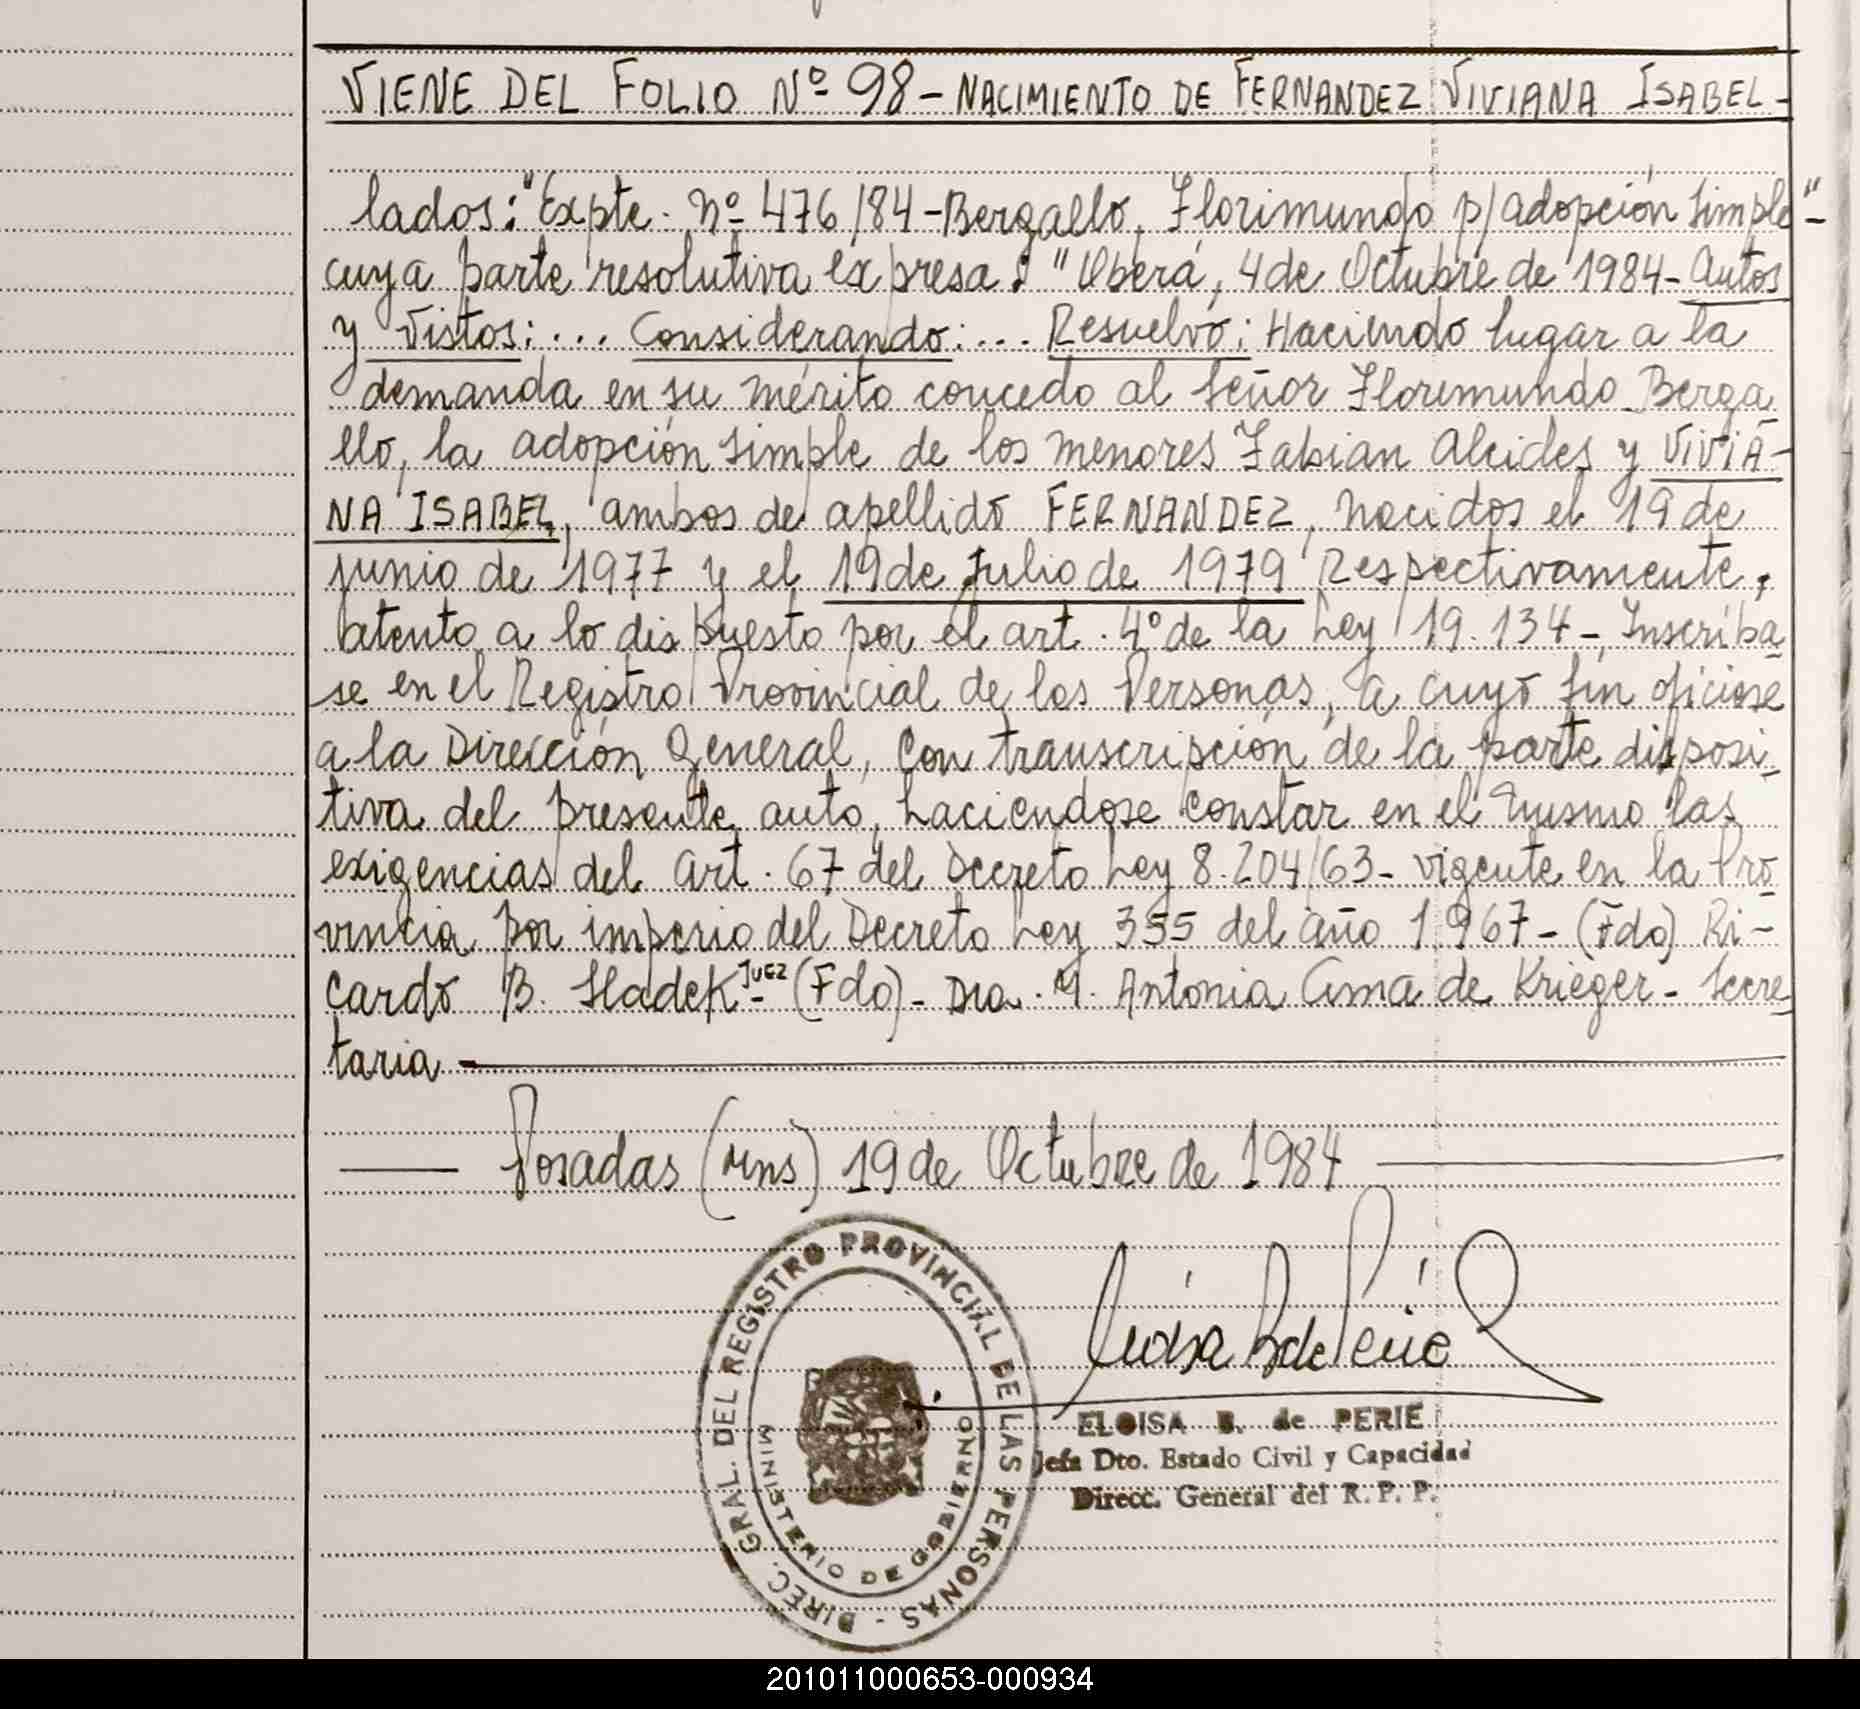 VIENE DEL FOLIO Nº 98 - NACIMIENTO DE FERNANDEZ VIVIANA ISABEL -
lados: "Expte. Nº 476/84 - Bergallo, Florimundo p/ adopción simple" -
cuya parte resolutiva expresa: "Oberá, 4 de Octubre de 1984 - Autos
y Vistos: ... Considerando: ... Resuelvo: Haciendo lugar a la
demanda en su mérito concedo al señor Florimundo Berga-
llo, la adopción simple de los menores Fabian Alcides y VIVIA-
NA ISABEL, ambos de apellido FERNANDEZ, nacidos el 19 de
junio de 1977 y el 19 de Julio de 1979 Respectivamente,
atento a lo dispuesto por el art. 4º de la Ley 19.134 - Inscríba-
se en el Registro Provincial de las Personas, a cuyo fin ofíciese
a la Dirección General, con transcripción de la parte disposi-
tiva del presente auto, haciendose constar en el mismo las
exigencias del art. 67 del Decreto Ley 8.204/63 - vigente en la Pro-
vincia por imperio del Decreto Ley 355 del año 1.967 - (Fdo) Ri-
cardo B. Sladek Juez - (Fdo) - Dra. M. Antonia Cima de Krieger - Secre-
taria -
Posadas (Mns) 19 de Octubre de 1984
DIREC. GRAL. DEL REGISTRO PROVINCIAL DE LAS PERSONAS -
MINISTERIO DE GOBIERNO
ELOISA B. de PERIE
Jefa Dto. Estado Civil y Capacidad
Direcc. General del R. P. P.
201011000653-000934